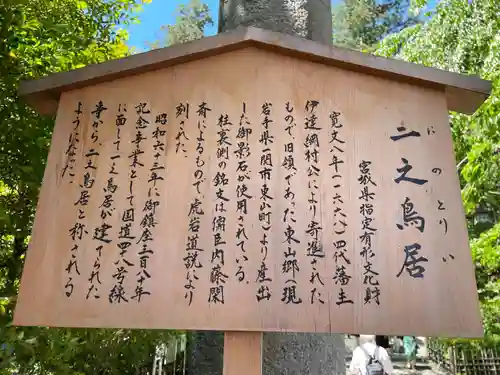 にのとりい
二之鳥居
宮城県指定有形文化財
寛文八年(一六六八)四代藩主
伊達綱村公により寄進された
もので旧領であった東山郷(現
岩手県一関市東山町)より産出
した御影石が使用されている。
柱裏側の銘文は儒臣内藤閑
斎によるもので、虎岩道説により
刻られた。
昭和六十三年に御鎮座三百八十年
記念事業として国道四十八号線
に面して一之鳥居が建てられた
事から、二之鳥居と称される
ようになった。